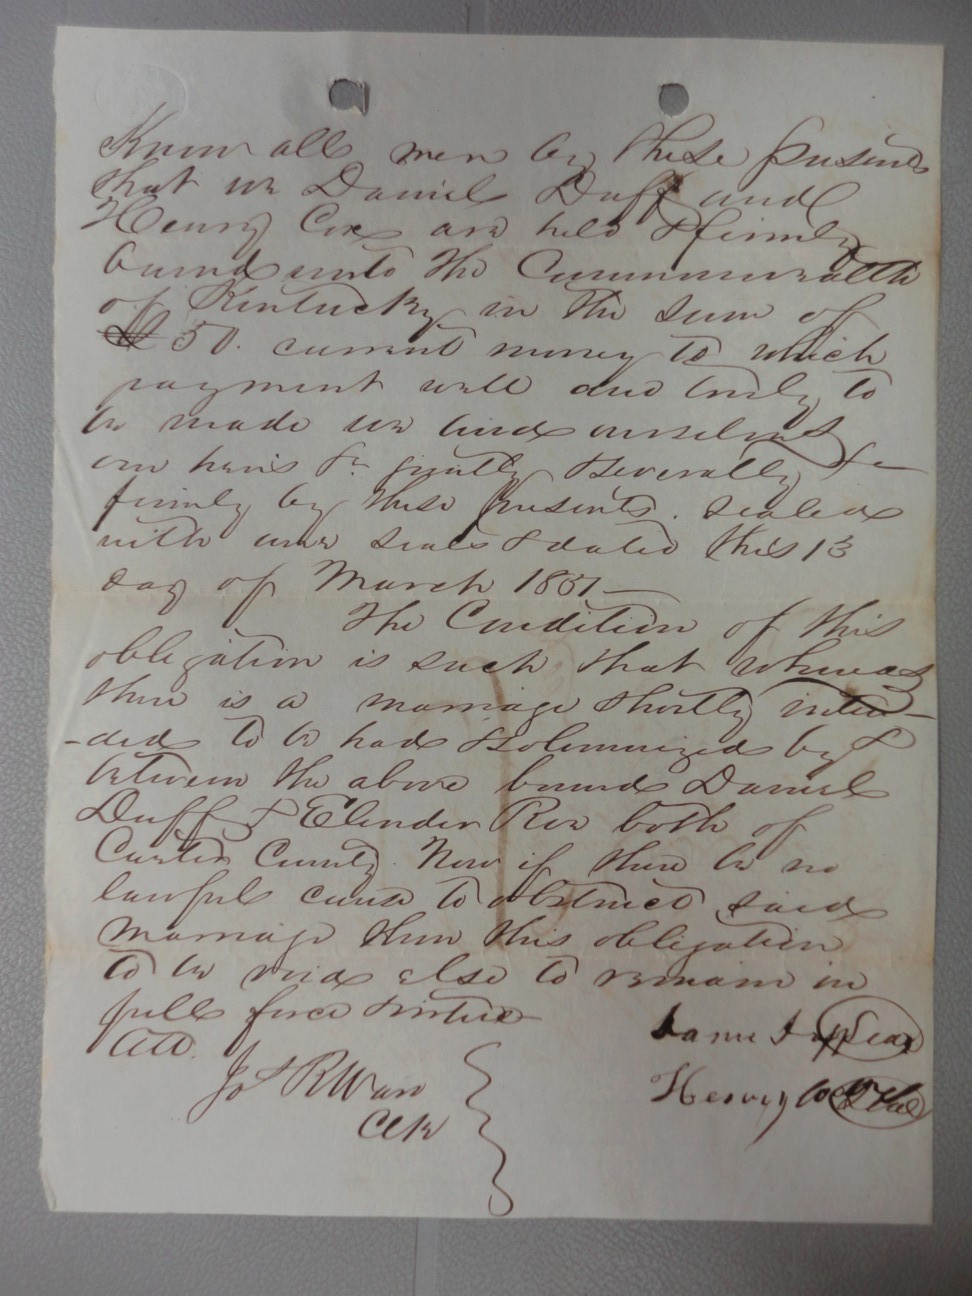 Know all men by these presents
that we Daniel Duff and
Henry Cox are held & firmly
bound unto the Commonwealth
of Kentucky in the sum of
£50. current money to which
payment well and truly to
be made we bind ourselves
our heirs &c jointly & severally &
firmly by these presents. sealed
with our seals & dated this 13
day of March 1851—
The Condition of this
obligation is such that whereas
there is a marriage shortly inten-
-ded to be had & solemnized by &
between the above bound Daniel
Duff & Elender Roe both of
Carter County. Now if there be no
lawful cause to obstruct said
marriage then this obligation
to be void else to remain in
full force & virtue
Att.
Jos R Ward
Clk
Duff Seal
Henry Cox Seal